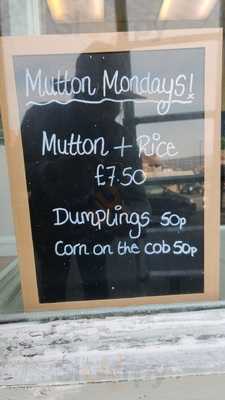 Mutton Mondays!
Mutton + Rice
£7.50
Dumplings 50p
Corn on the cob 50p